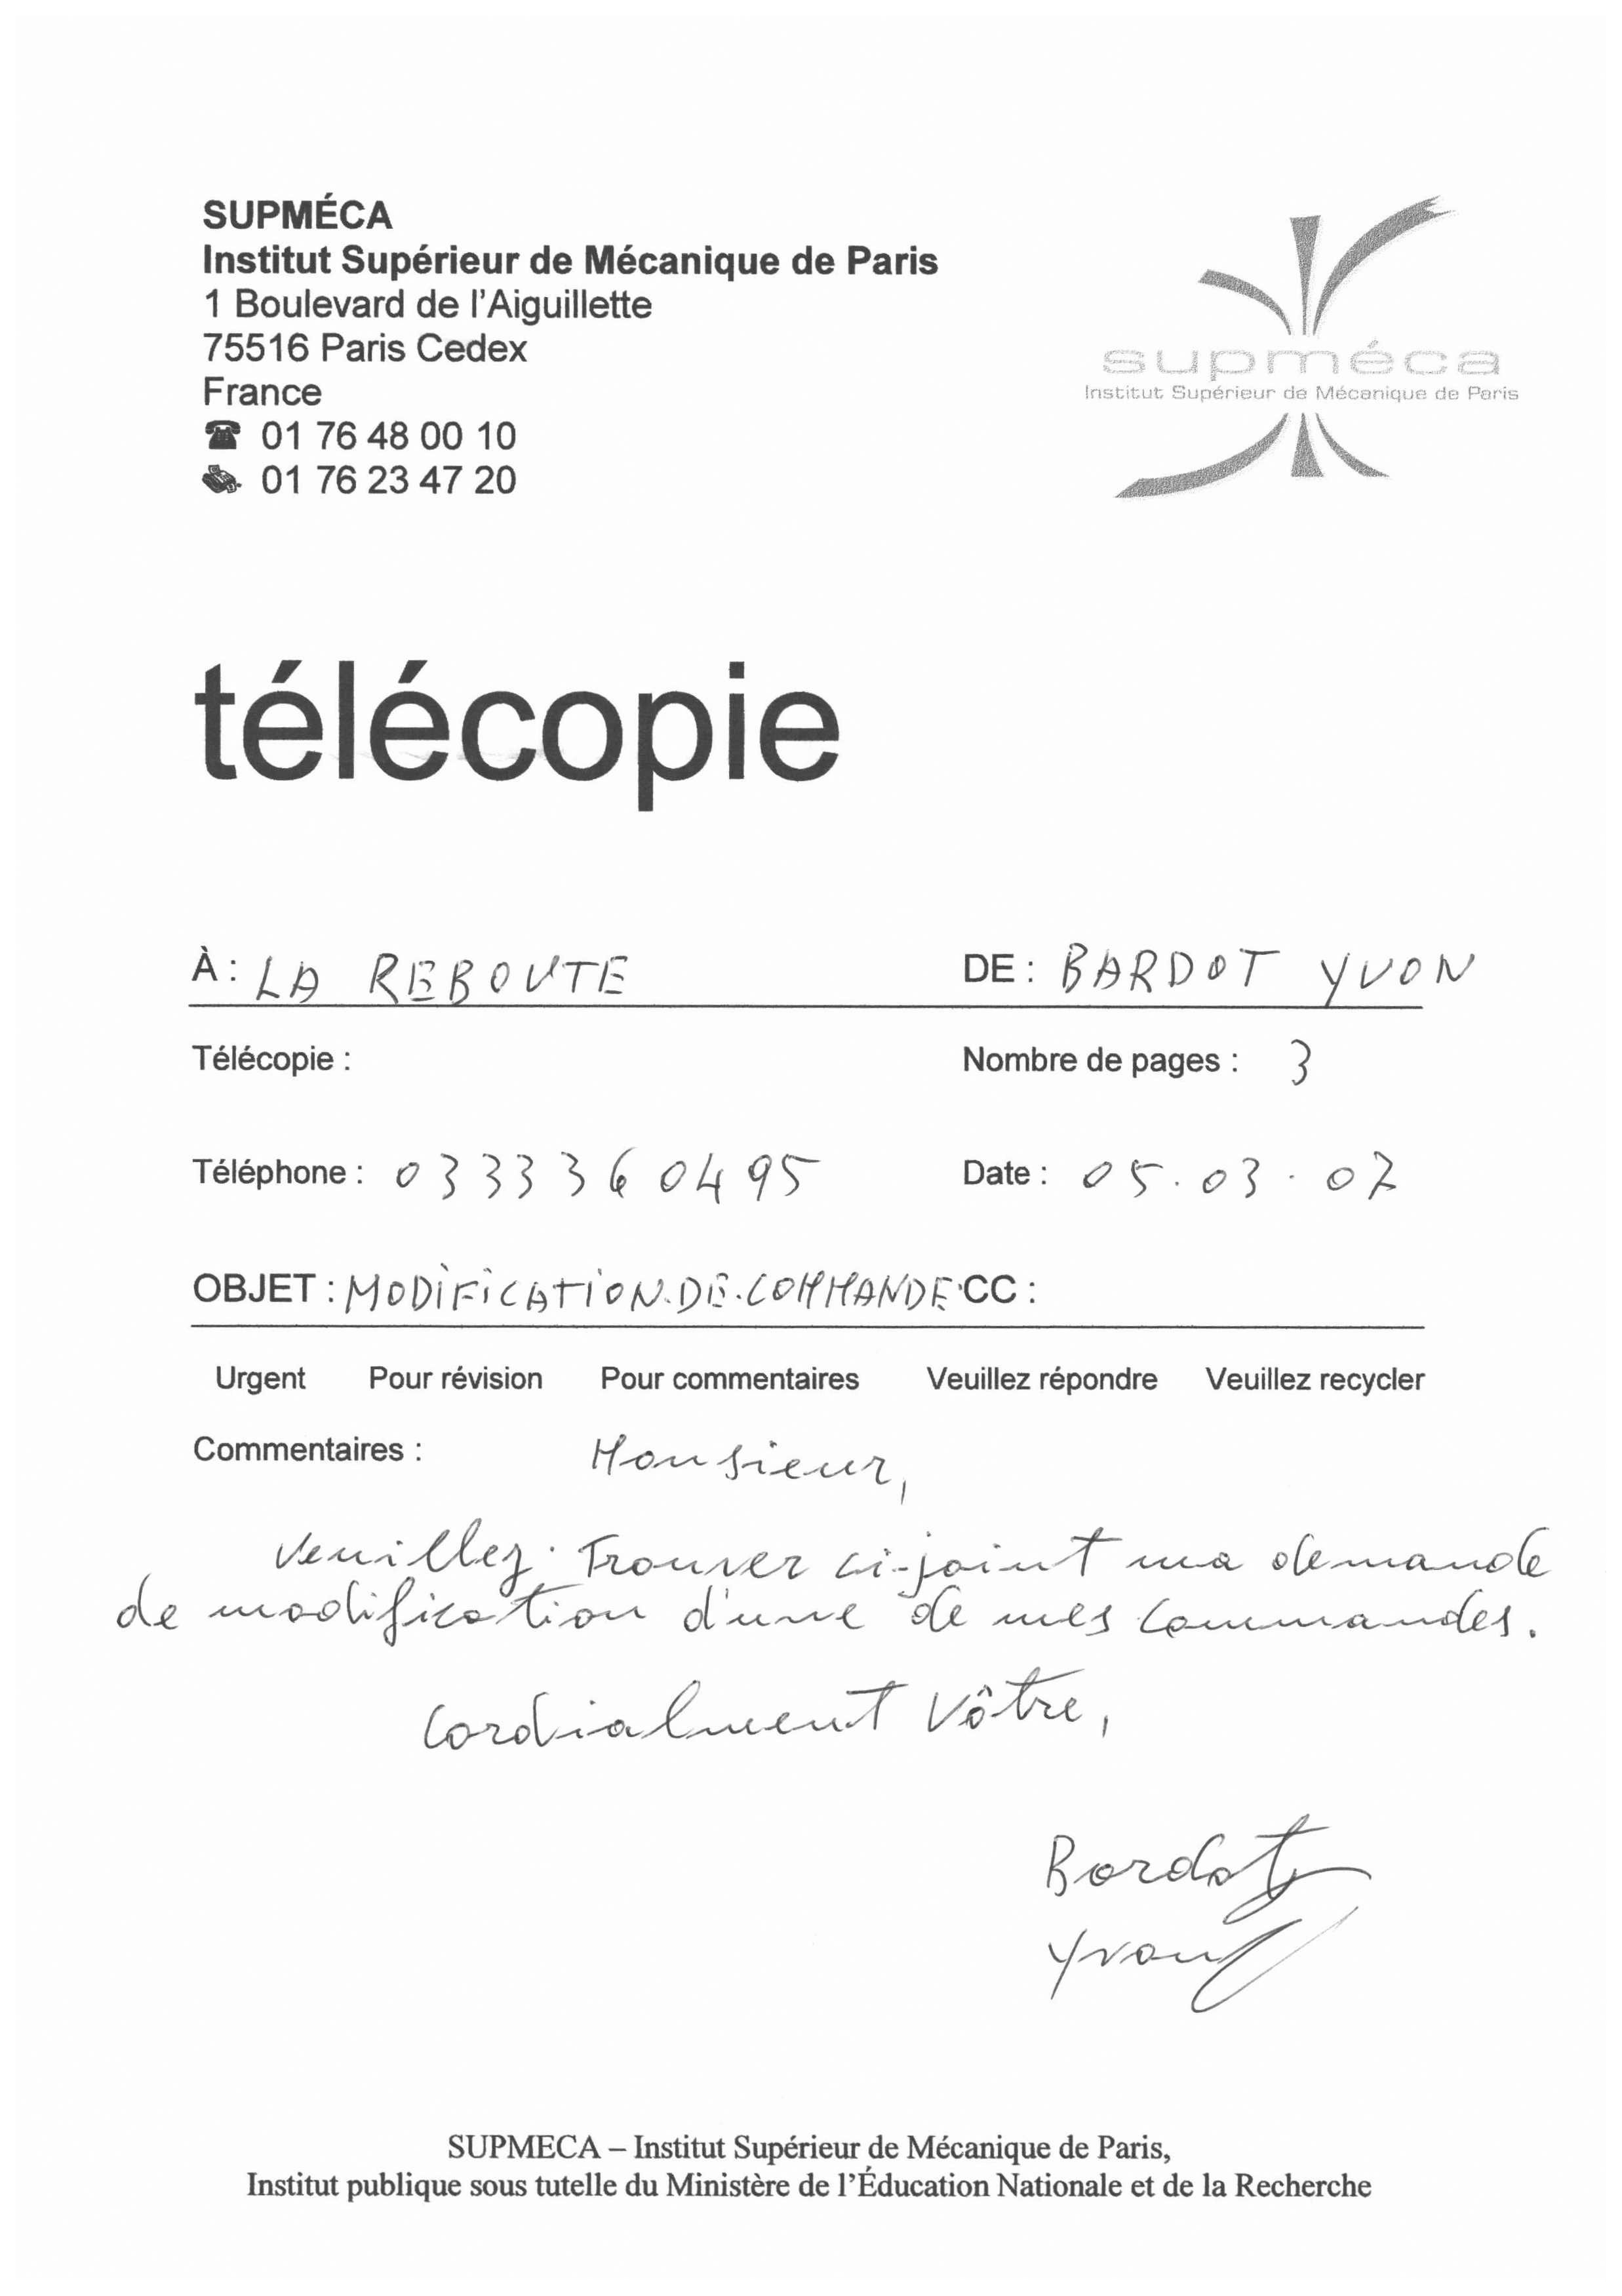 SUPMÉCA
Institut Supérieur de Mécanique de Paris
1 Boulevard de l'Aiguillette
75516 Paris Cedex
France
☎ 01 76 48 00 10
📠 01 76 23 47 20
supméca
Institut Supérieur de Mécanique de Paris
télécopie
À : LA REBOUTE DE : BARDOT YVON
Télécopie : Nombre de pages : 3
Téléphone : 0333360495 Date : 05.03.07
OBJET : MODIFICATION.DE.COMMANDE CC :
Urgent Pour révision Pour commentaires Veuillez répondre Veuillez recycler
Commentaires : Monsieur,
Veuillez trouver ci-joint ma demande
de modification d'une de mes commandes.
Cordialment Vôtre,
Bardot
Yvon
SUPMECA – Institut Supérieur de Mécanique de Paris,
Institut publique sous tutelle du Ministère de l'Éducation Nationale et de la Recherche